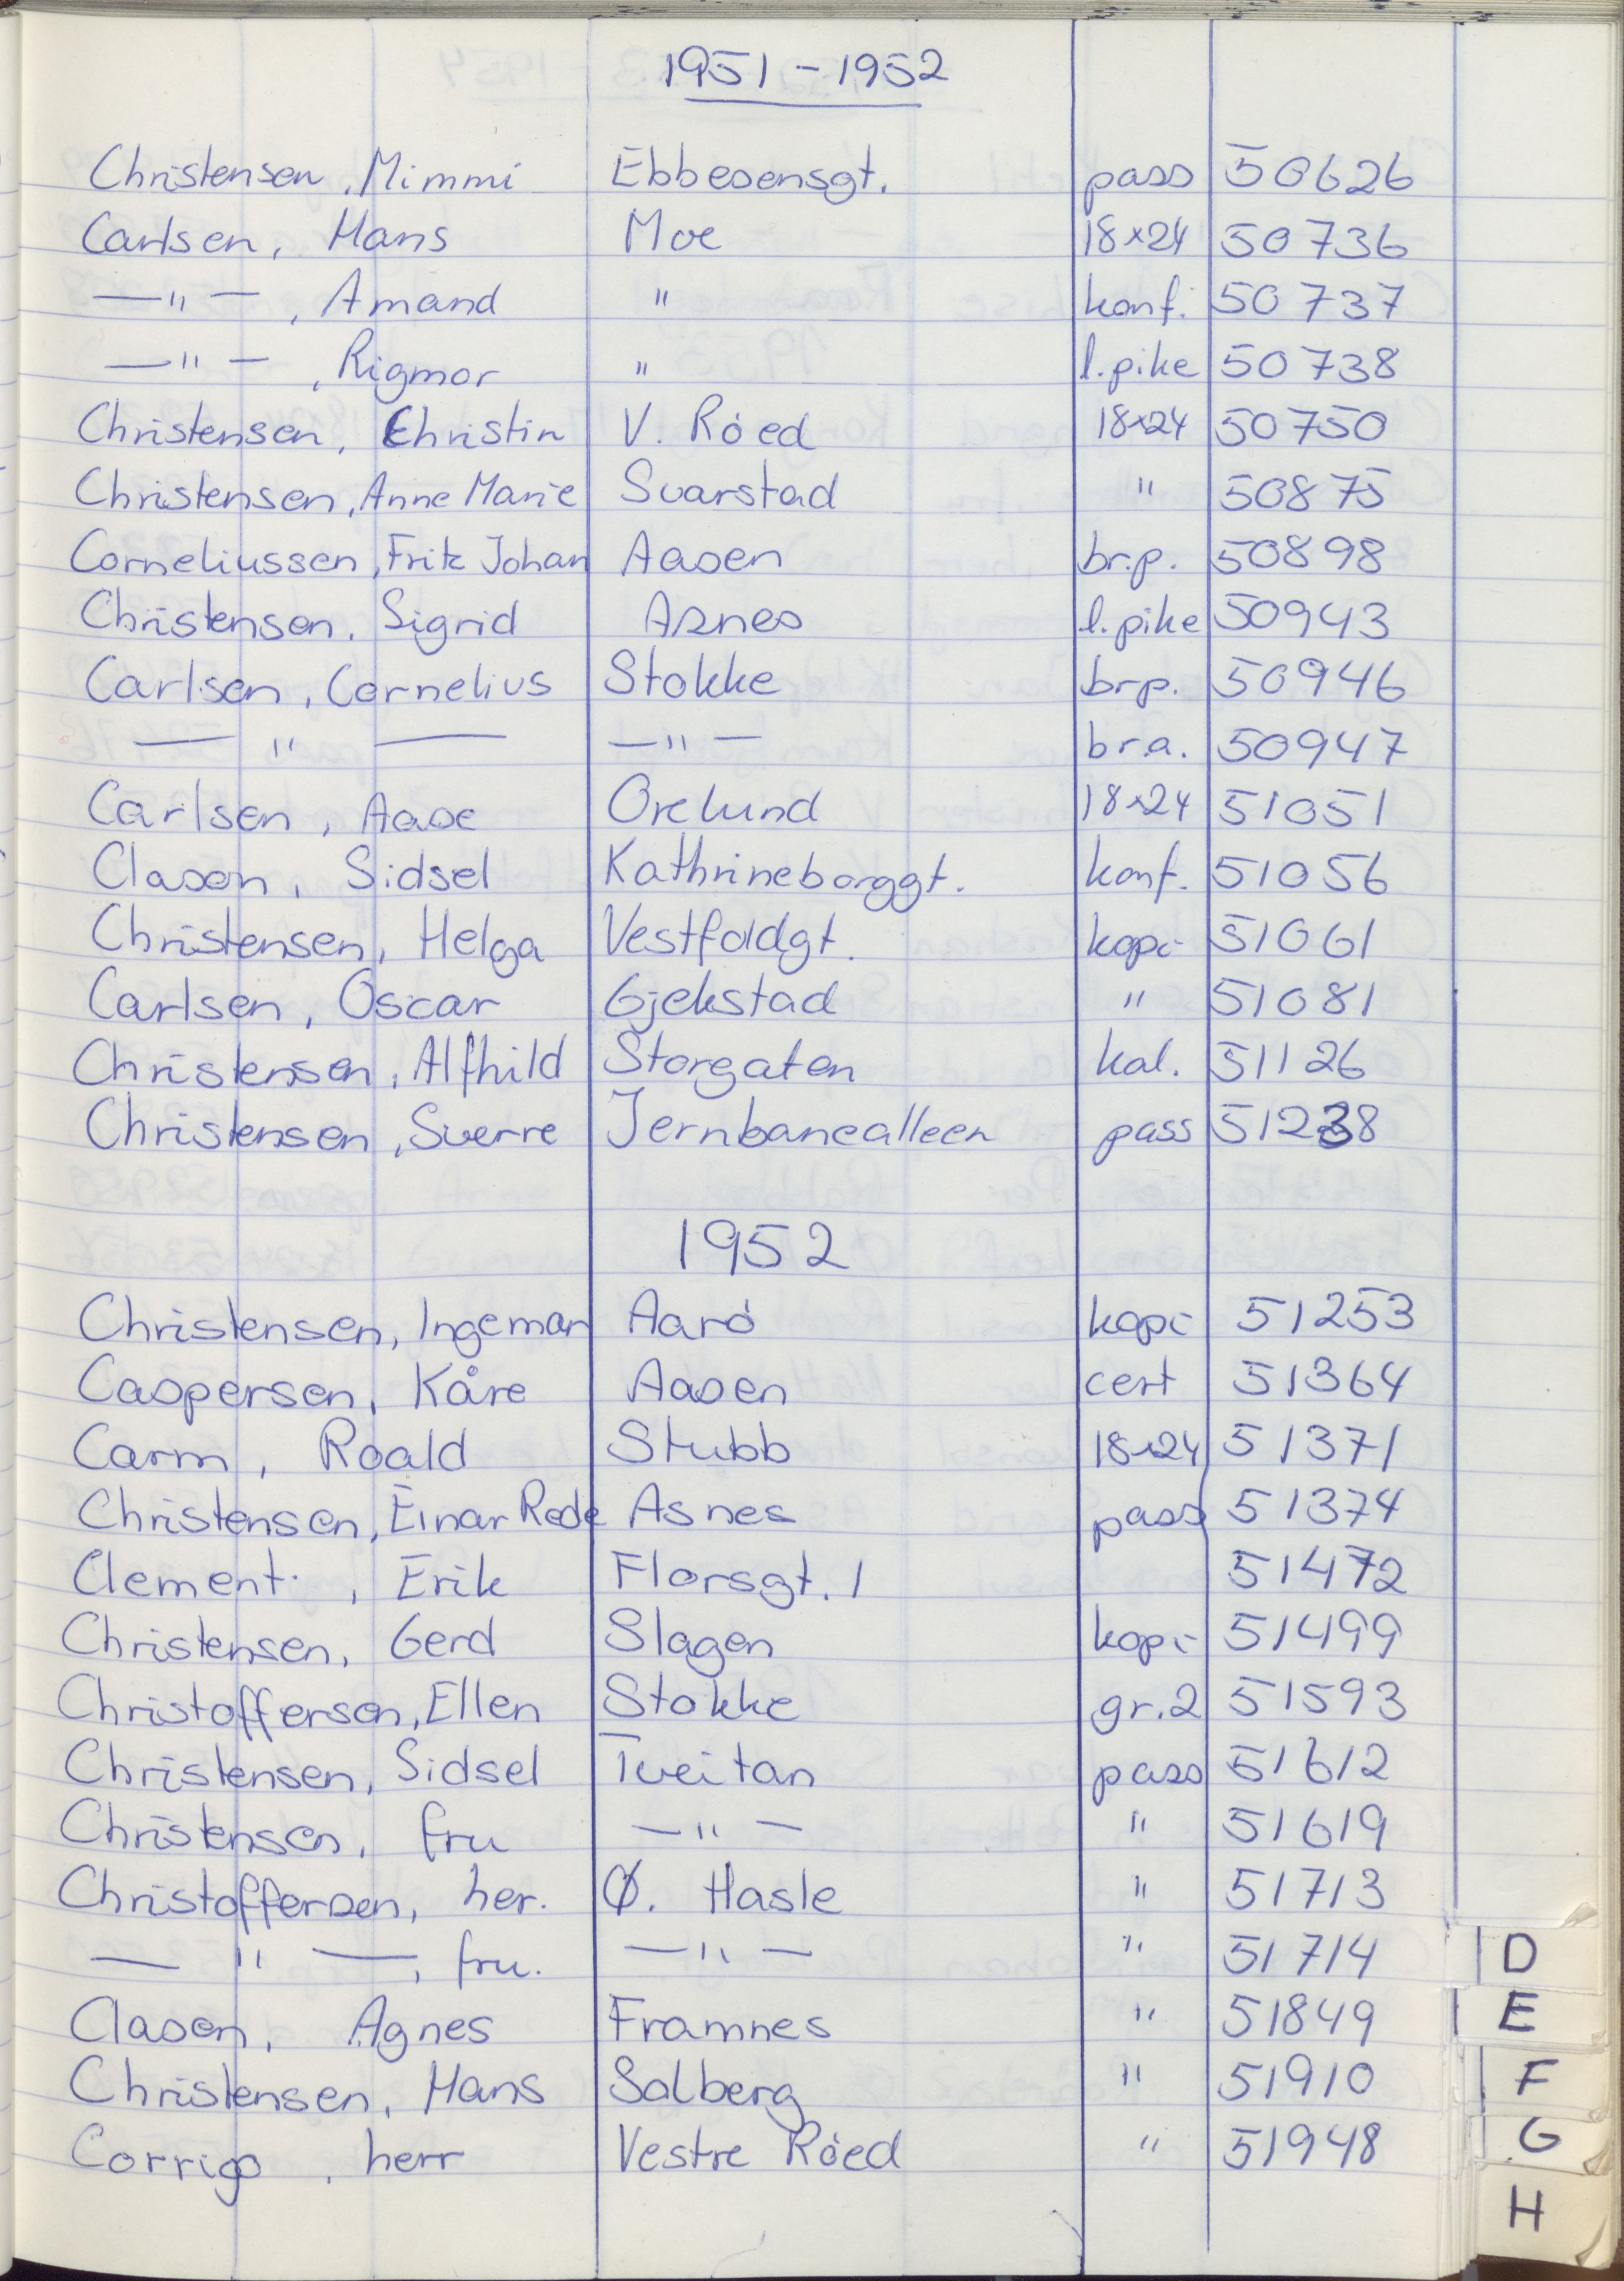 1951-1952
Christensen, Mimmi Ebbesensgt. pass 50626
Carlsen, Hans Moe 18x24 50736
—"—, Amand " konf. 50737
—"—, Rigmor " l.pike 50738
Christensen, Christin V. Röed 18x24 50750
Christensen, Anne Marie Svarstad " 50875
Corneliussen, Fritz Johan Aasen br.p. 50898
Christensen, Sigrid Asnes l.pike 50943
Carlsen, Cornelius Stokke brp. 50946
—"— —"— br.a. 50947
Carlsen, Aase Orelund 18x24 51051
Clason, Sidsel Kathrineborggt. konf. 51056
Christensen, Helga Vestfoldgt. kopi 51061
Carlsen, Oscar Gjekstad " 51081
Christensen, Alfhild Storgaten kal. 51126
Christensen, Sverre Jernbanealleen pass 51238
1952
Christensen, Ingemar Aarö kopi 51253
Caspersen, Kåre Aasen cert 51364
Carm, Roald Stubb 18x24 51371
Christensen, Einar Rede Asnes pass 51374
Clement, Erik Florsgt. 1 51472
Christensen, Gerd Slagen kopi 51499
Christoffersen, Ellen Stokke gr.2 51593
Christensen, Sidsel Tveitan pass 51612
Christensen, fru —"— " 51619
Christoffersen, her. Ø. Hasle " 51713
—"—, fru. —"— " 51714
Clason, Agnes Framnes " 51849
Christensen, Hans Solberg " 51910
Corrigo, herr Vestre Röed " 51948
D
E
F
G
H